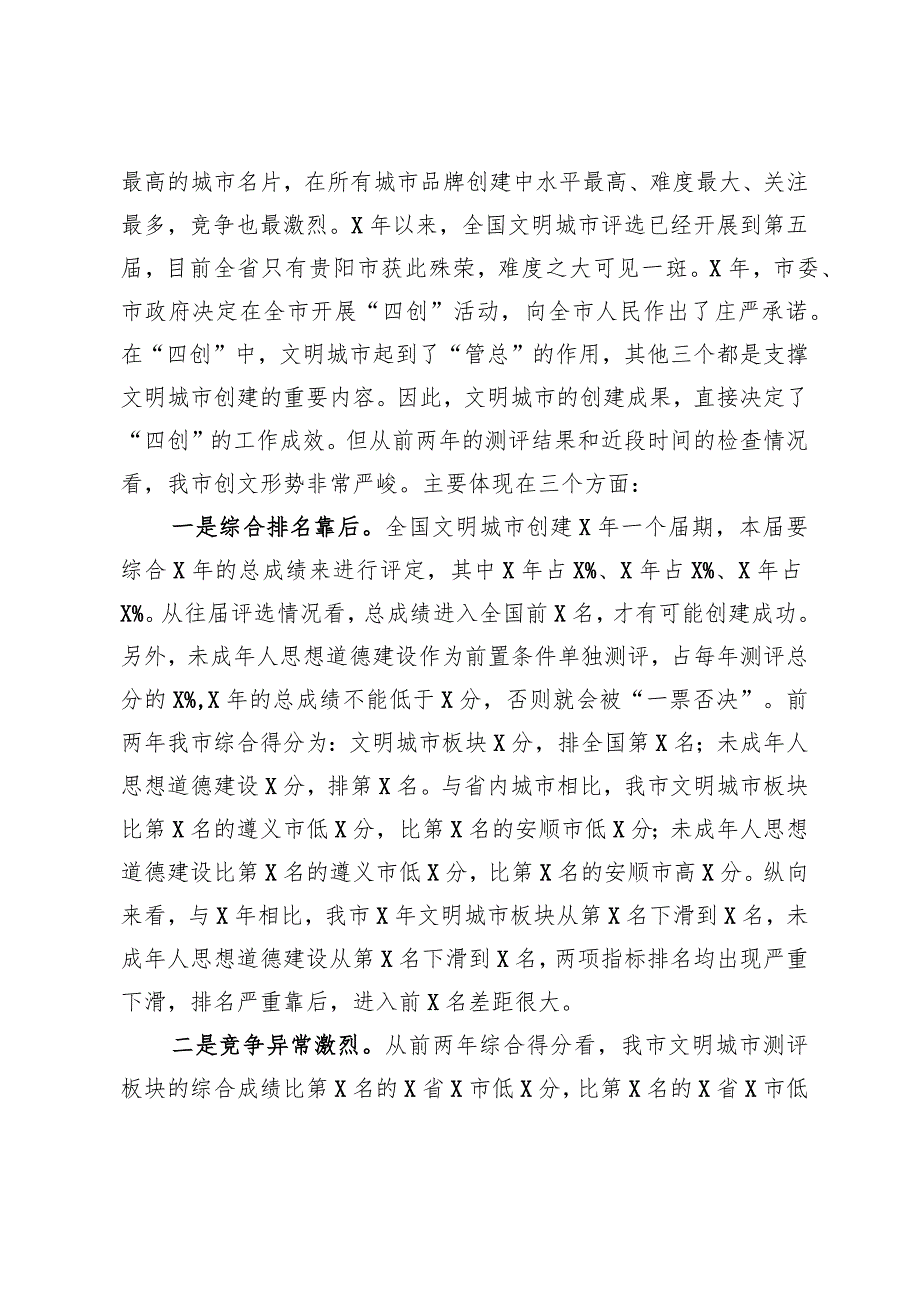 最高的城市名片，在所有城市品牌创建中水平最高、难度最大、关注
最多，竞争也最激烈。X 年以来，全国文明城市评选已经开展到第五
届，目前全省只有贵阳市获此殊荣，难度之大可见一斑。X 年，市委、
市政府决定在全市开展“四创”活动，向全市人民作出了庄严承诺。
在“四创”中，文明城市起到了“管总”的作用，其他三个都是支撑
文明城市创建的重要内容。因此，文明城市的创建成果，直接决定了
“四创”的工作成效。但从前两年的测评结果和近段时间的检查情况
看，我市创文形势非常严峻。主要体现在三个方面：
一是综合排名靠后。全国文明城市创建 X 年一个届期，本届要
综合 X 年的总成绩来进行评定，其中 X 年占 X%、X 年占 X%、X 年占
X%。从往届评选情况看，总成绩进入全国前 X 名，才有可能创建成功。
另外，未成年人思想道德建设作为前置条件单独测评，占每年测评总
分的 X%,X 年的总成绩不能低于 X 分，否则就会被“一票否决”。前
两年我市综合得分为：文明城市板块 X 分，排全国第 X 名；未成年人
思想道德建设 X 分，排第 X 名。与省内城市相比，我市文明城市板块
比第 X 名的遵义市低 X 分，比第 X 名的安顺市低 X 分；未成年人思想
道德建设比第 X 名的遵义市低 X 分，比第 X 名的安顺市高 X 分。纵向
来看，与 X 年相比，我市 X 年文明城市板块从第 X 名下滑到 X 名，未
成年人思想道德建设从第 X 名下滑到 X 名，两项指标排名均出现严重
下滑，排名严重靠后，进入前 X 名差距很大。
二是竞争异常激烈。从前两年综合得分看，我市文明城市测评
板块的综合成绩比第 X 名的 X 省 X 市低 X 分，比第 X 名的 X 省 X 市低